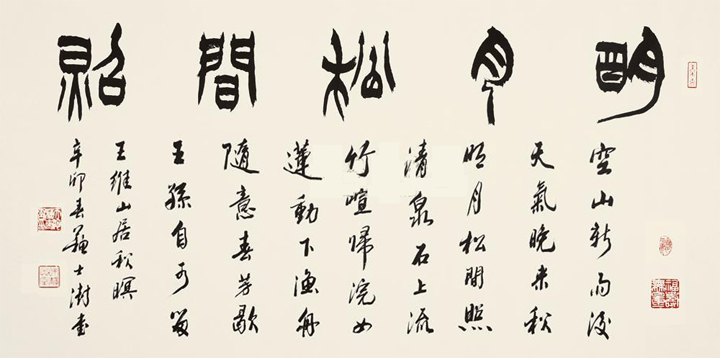 明月松間照
空山新雨後
天氣晚来秋
明月松間照
清泉石上流
竹喧歸浣女
蓮動下漁舟
隨意春芳歇
王孫自可留
王維山居秋暝
辛卯春蘇士澍書